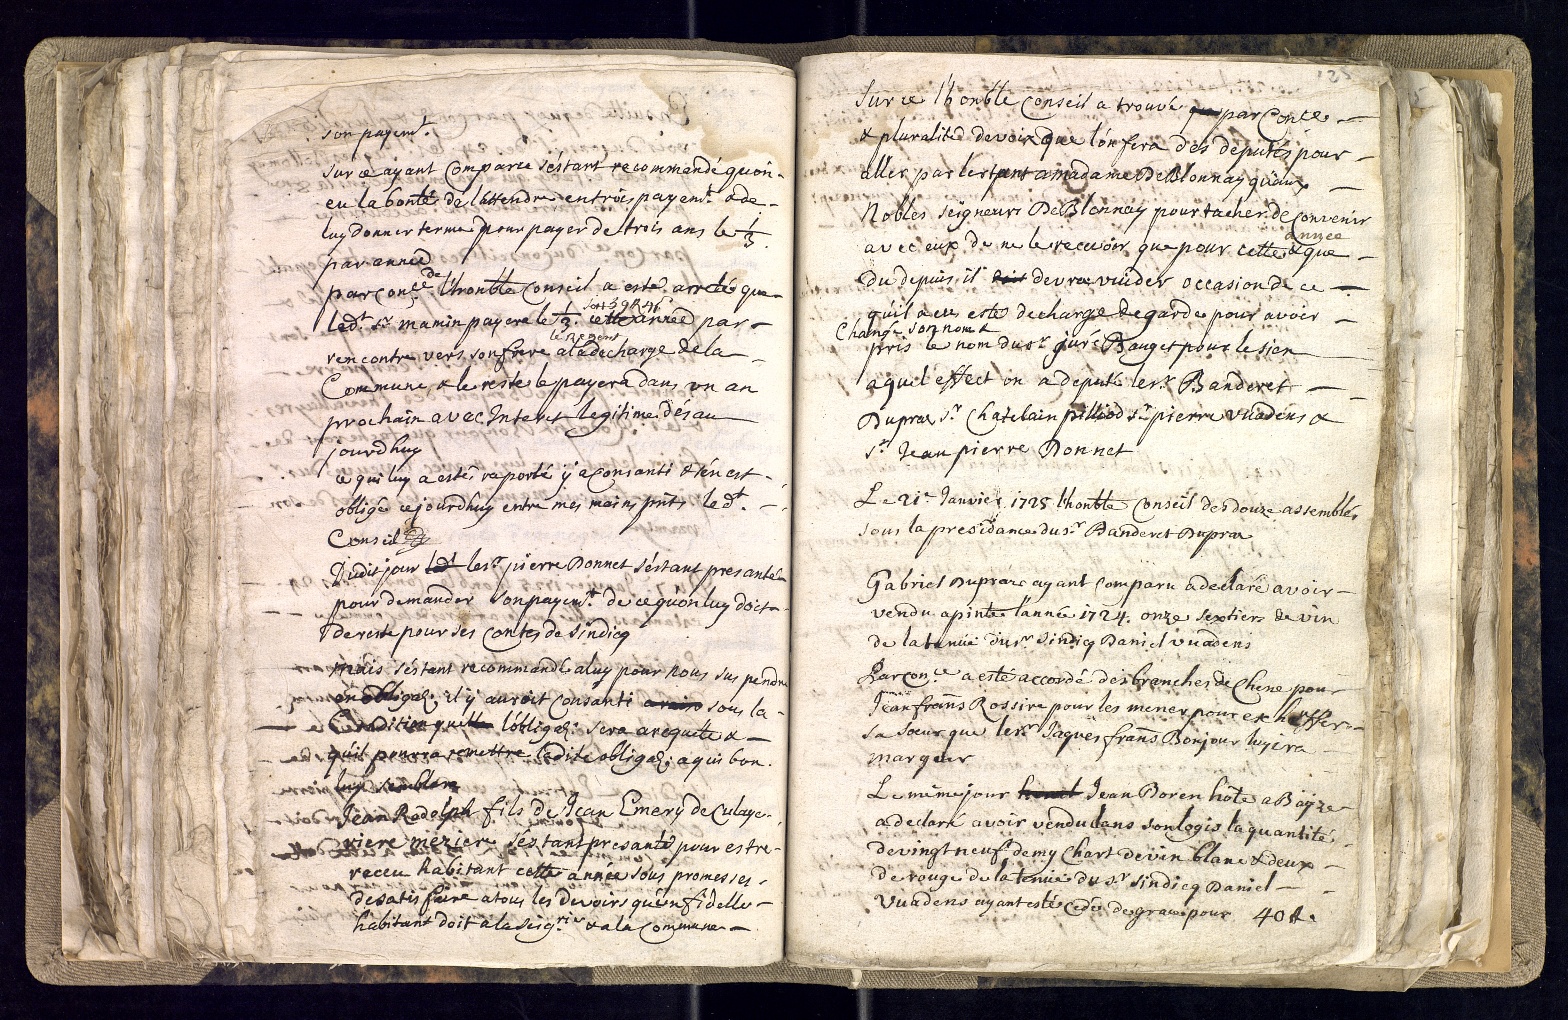 son payemt.
sur ce ayant comparu s'estant recommendé qu'on
eu la bonté de l'attendre en trois payemt. & de
luy donner terme pour payer de trois ans le 1/3.
par année
par conce de l'honble Conseil a esté arreté que
led.t Sr mamin payera le 1/3. cette année par
rencontre vers son frere le Regent a la décharge de la
Commune, & le reste le payera dans un an
prochain avec Interet legitime dés au
jourdhuy
ce qui luy a esté raporté y a consanti & s'en est
obligé cejourdhuy entre mes mains pnts le d.t
Conseil
Dudit jour le Sr pierre Bonnet s'estant presanté
pour demander son payemt. de ce qu'on luy doit
de reste pour ses Contes de sindicq
mais s'estant recommandé a luy pour nous suspendre
en obligaõn, il y auroit Consanti sous la
Condition que l'obligaõn sera a requete &
quil pourra remettre ladite obligaõn a qui bon
luy semblera
Jean Rodolph fils de Jean Emery de Culaye
riere mezieres s'estant presanté pour estre
receu habitant cette année sous promesses
de satisfaire a tous les devoirs qu'un fidelle
habitant doit a la seigrie & a la Commune
125
Sur ce l'honble Conseil a trouvé par Conce
& pluralité de voix que l'on fera des députés pour
aller par lertpnt a madame De Blonnay qu'aux
Nobles seigneurs De Blonnay pour tacher de Convenir
avec eux de ne le recevoir que pour cette année & que
du depuis il devra vuider occasion de ce
qu'il a eu esté dechargé de garde pour avoir
Changé son nom &
pris le nom du Sr juré Bauget pour le sien
a quel effect on a deputé le Sr Banderet
Dupraz Sr Chatelain pilliod Sr pierre vuadens &
Sr Jean pierre Bonnet
Le 21e Janvier 1725 l'honble Conseil des douze assemblés
sous la presidance du Sr Banderet Dupraz
Gabriel Dupraz ayant Comparu a declaré avoir
vendu a pinte l'année 1724. onze sextiers de vin
de la tenüe du Sr sindicq Daniel vuadens
Par conce a esté accordé des branches de Chene pour
Jean frans Rossire pour les mener pour exchaffer
sa soeur que le Sr Jaques frans Bonjour luy ira
marquer
Le même jour Jean Doren hôte a Bayze
a declaré avoir vendu dans son logis la quantité
de vingt neuf demy Chart de vin blanc & deux
de rouge de la tenüe du Sr sindicq Daniel
vuadens ayant esté cédé de grace pour 40 ft.